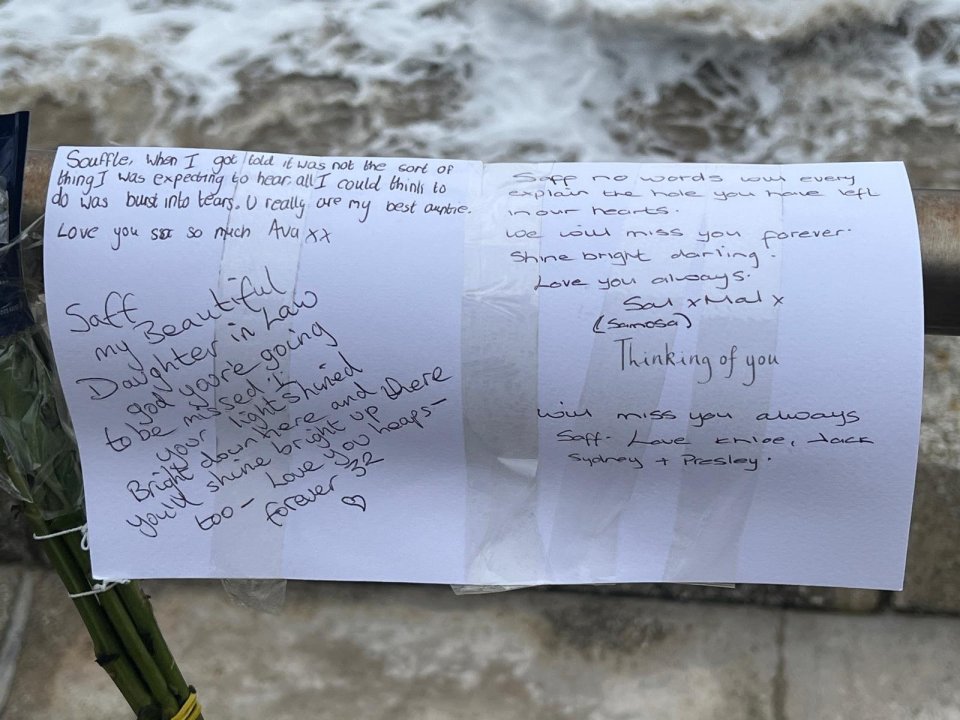 Souffle, when I got told it was not the sort of
thing I was expecting to hear, all I could think to
do was bust into tears. U really are my best auntie.
Love you so so much Ava xx
Saff
my Beautiful
Daughter in Law
god you're going
to be missed !
your light shined
Bright down here and
you'll shine bright up there
too - Love you heaps -
forever 32
Saff no words will every
explain the hole you have left
in our hearts.
We will miss you forever.
Shine bright darling.
Love you always.
Sal x Mal x
(Samosa)
Thinking of you
will miss you always
Saff. Love Khloe, Jack
Sydney + Presley.